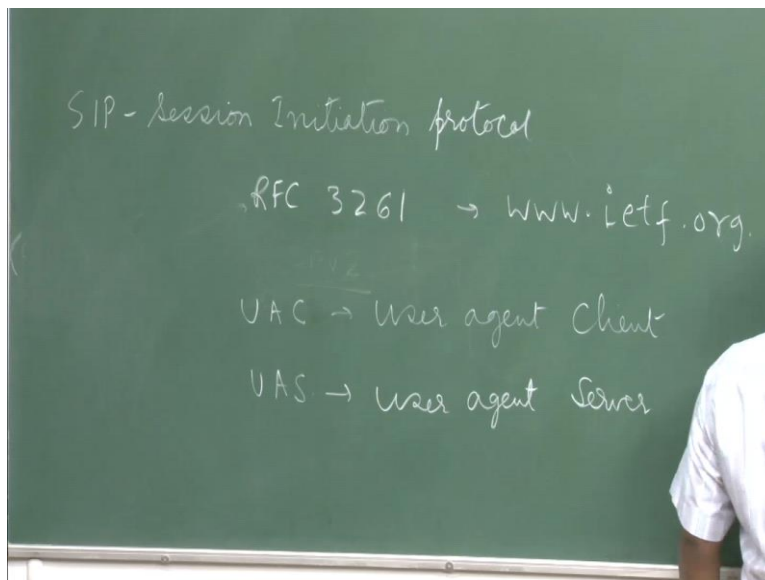 SIP - Session Initiation protocol
RFC 3261 → www.ietf.org.
UAC → User agent Client
UAS → User agent Server